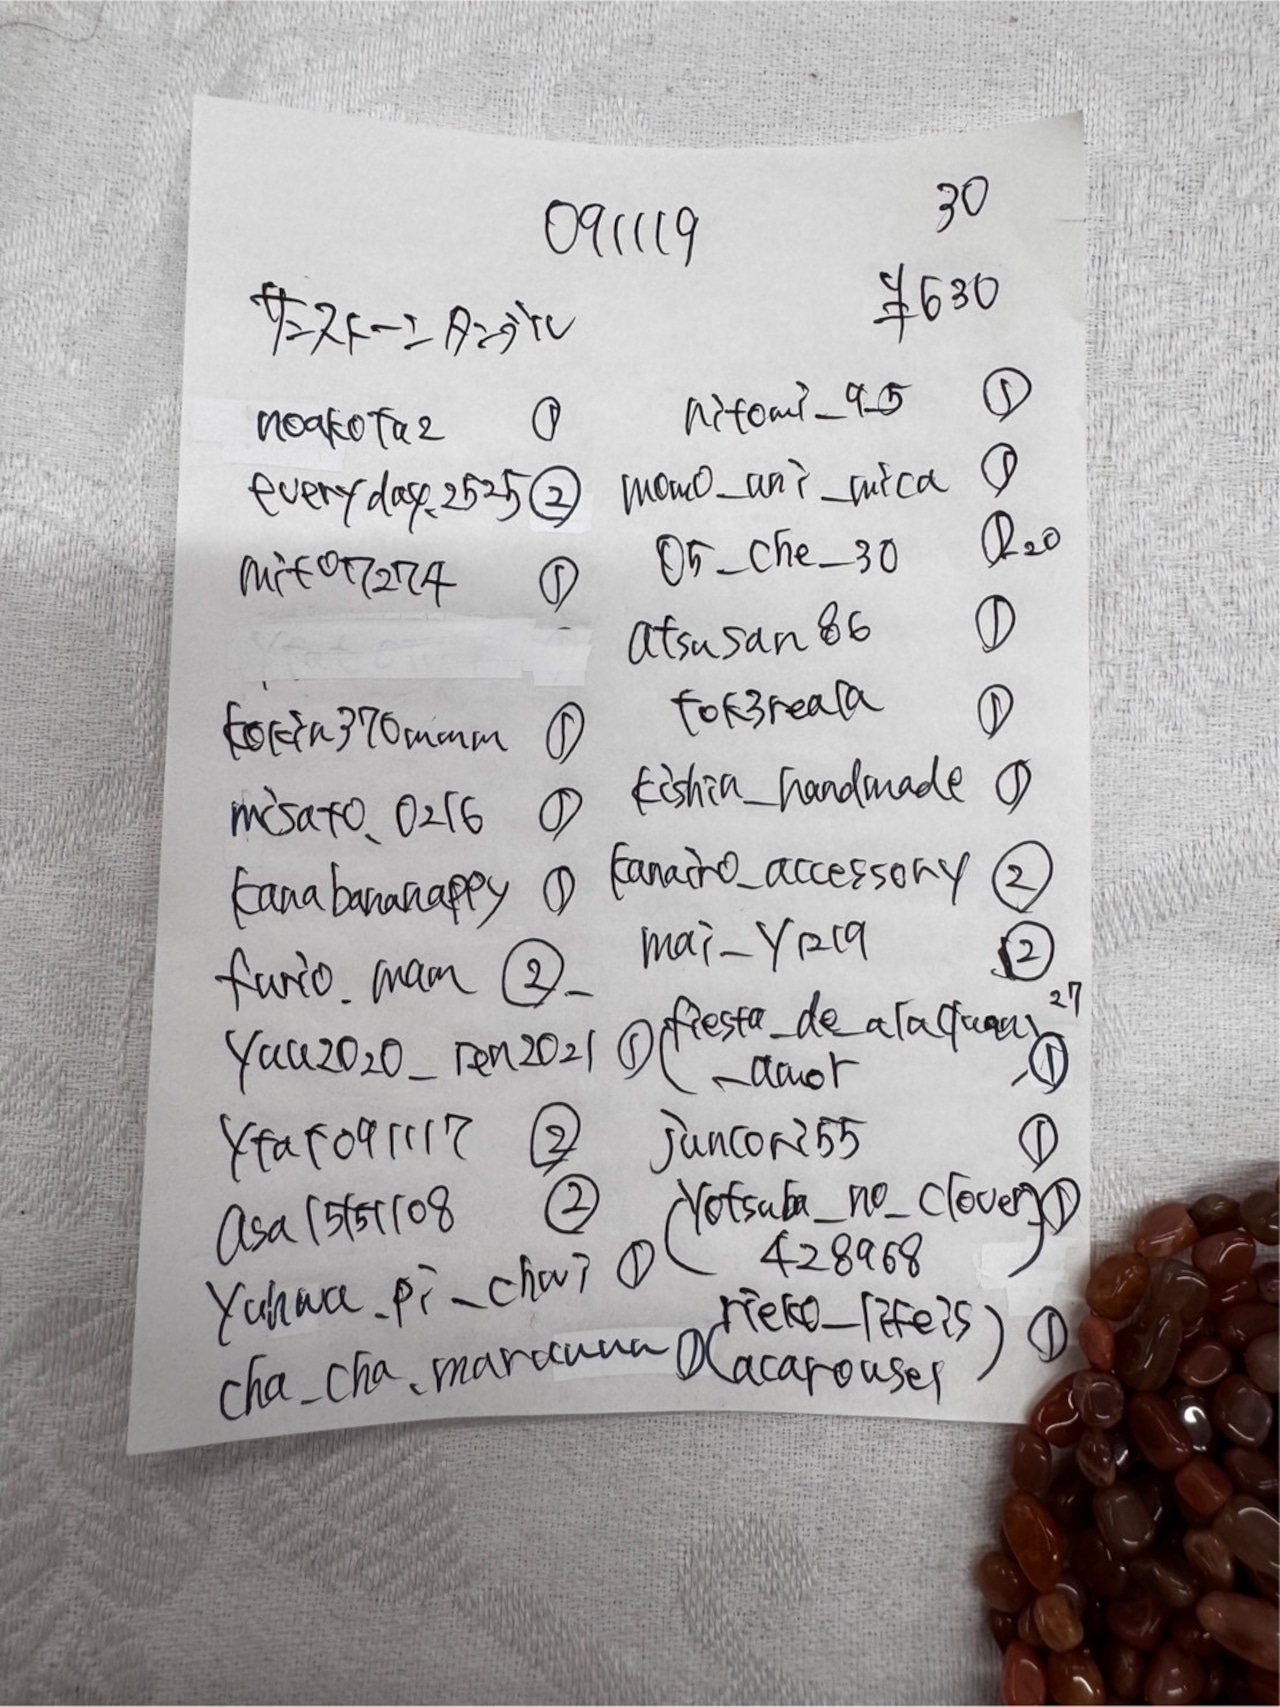 091119
30
¥630
サンストーンタンブル
noakota2 ①
everyday.2525 ②
mit07274 ①
tokin370mmm ①
misato.0216 ①
kanabananappy ①
furio.mam ②
yuu2020_ren2021 ①
ytat091117 ②
asa15151108 ②
①
cha_cha. ①
hitomi_9.5 ①
momo_ani_mica ①
05_che_30 ① 20
atsusan86 ①
tok3reala ①
kishin_handmade ①
kanairo_accessory ②
mai_y1219 ②
27
(fiesta_de_
_amor ①
juncori55 ①
(yotsuba_no_clover ①
428968)
rieko_lifeis ①
(acarousel)